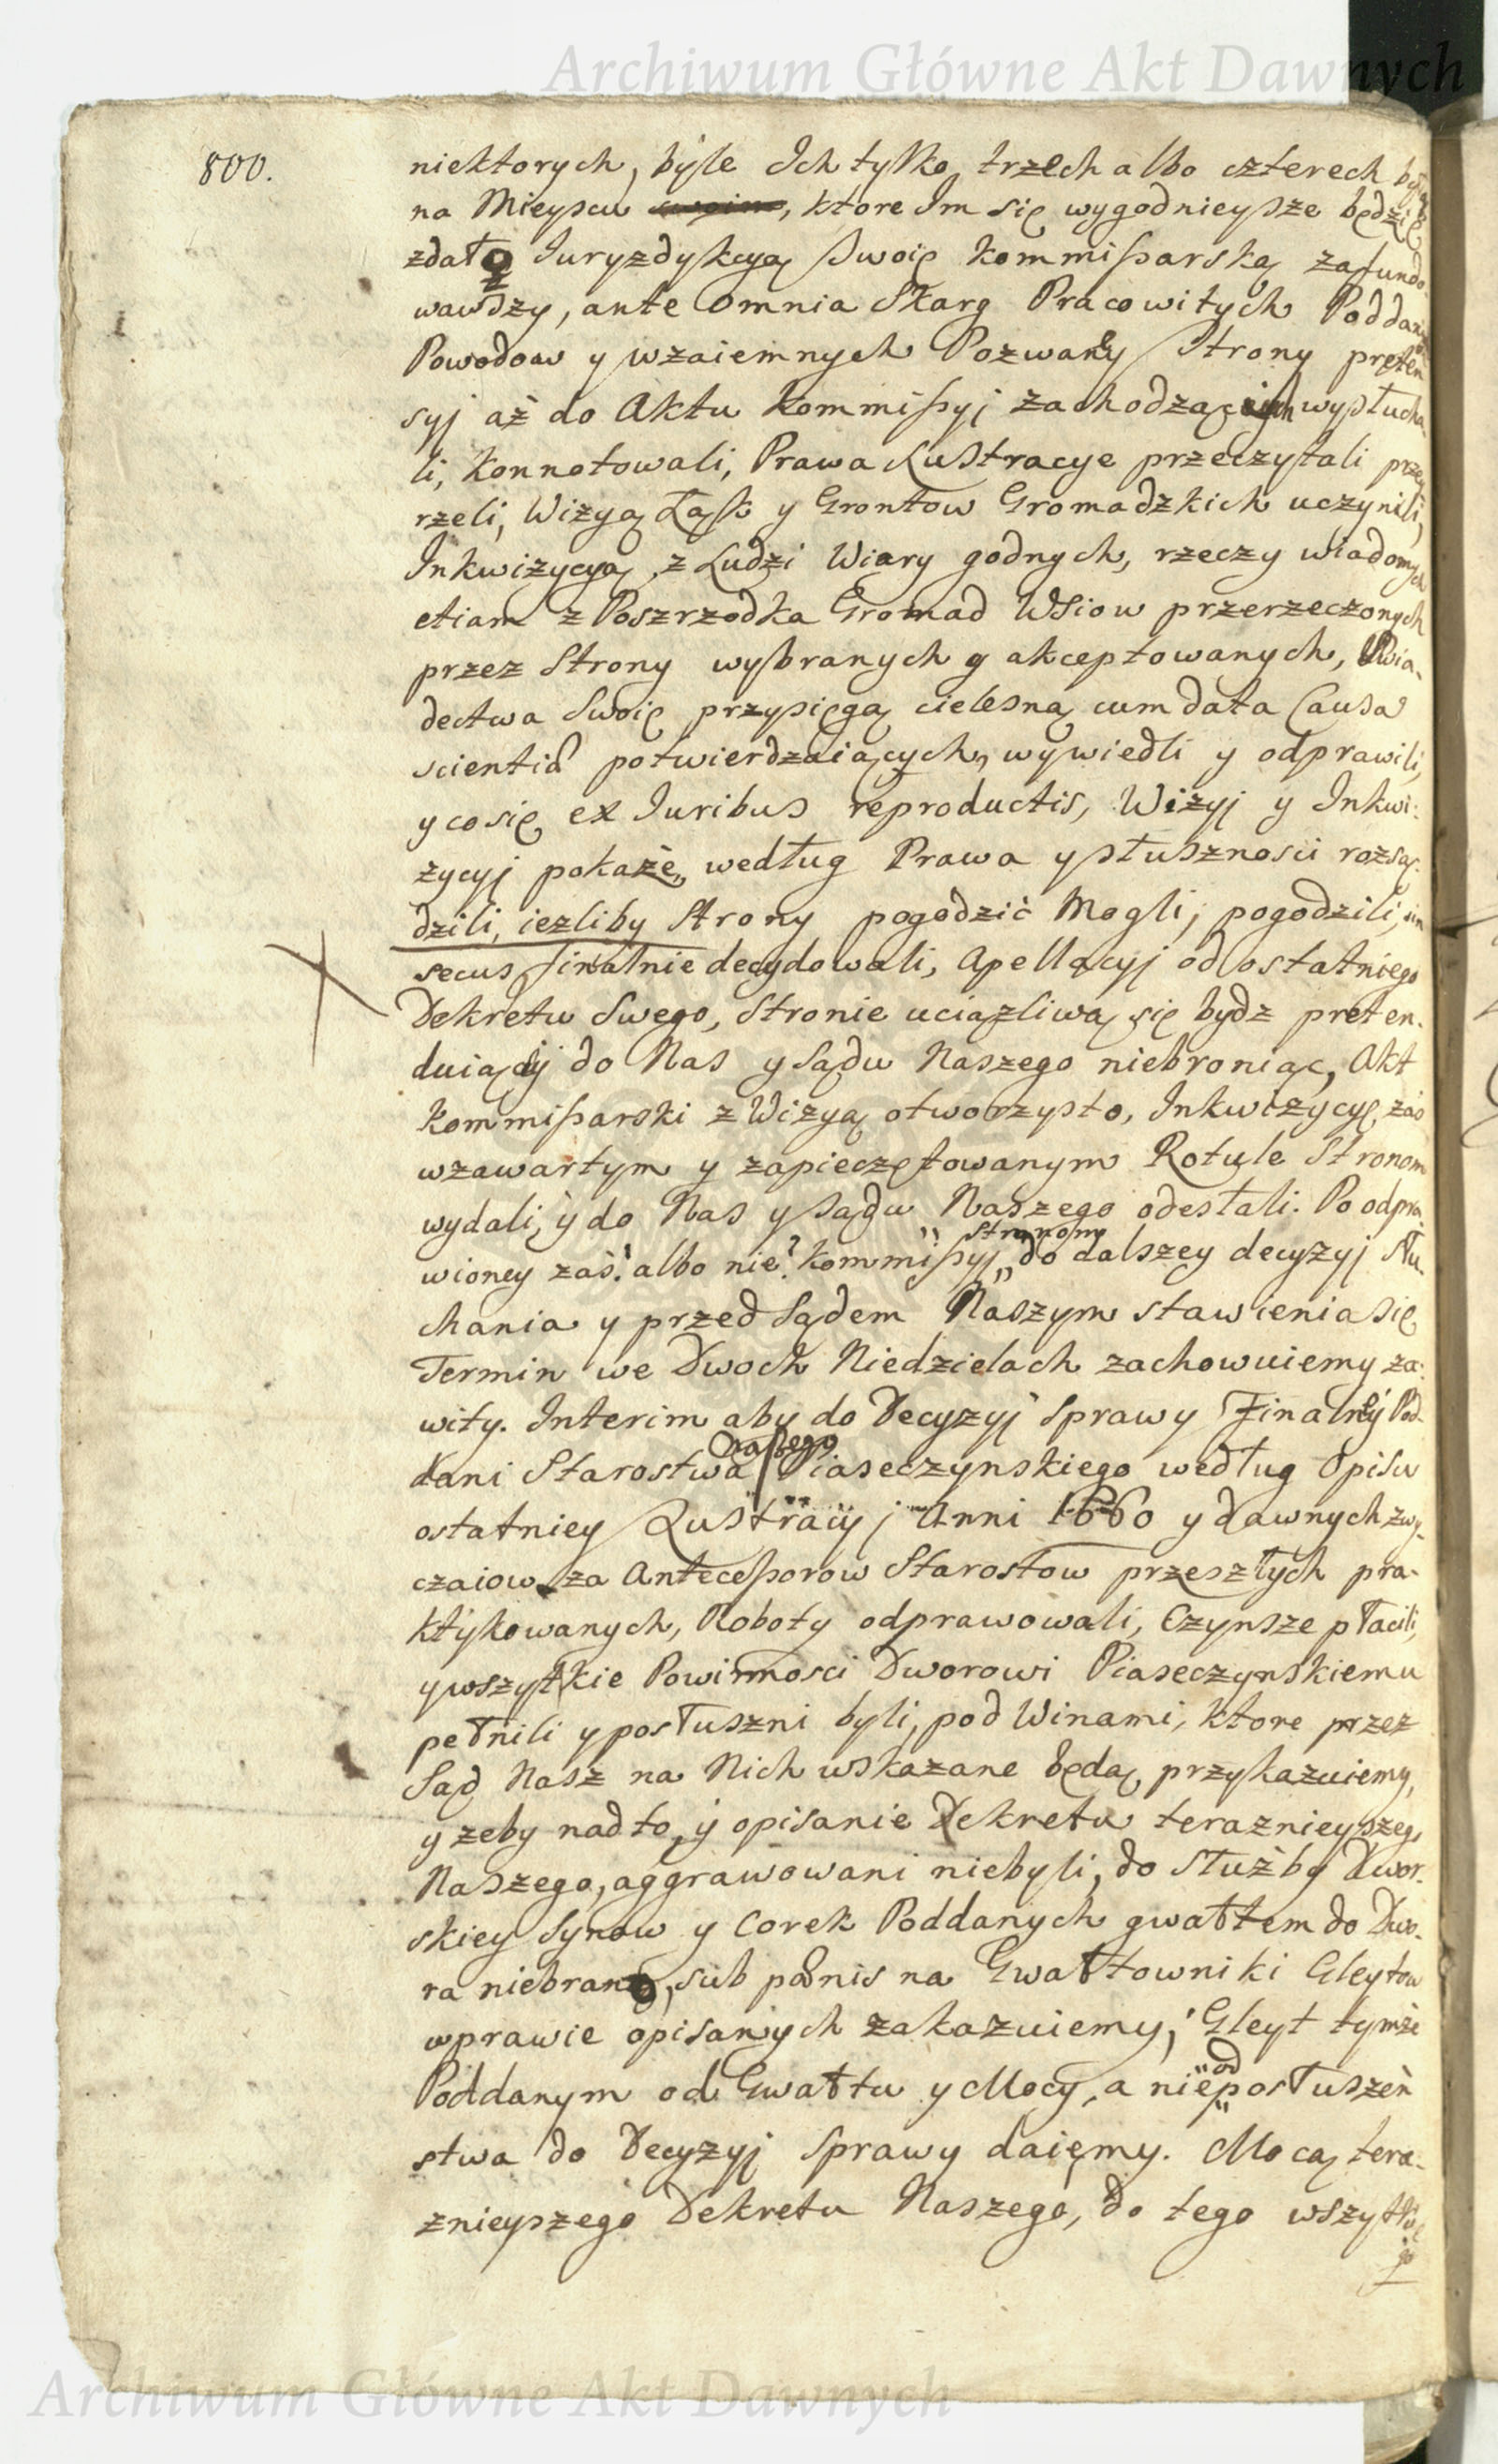 Archiwum Główne Akt Dawnych
800.
niektorych, byle Ich tylko trzech albo czterech było
na Mieyscu swoim, ktore Im się wygodnieysze będzie
zdało Iuryzdykcyą swoię Kommissarską zafundo-
wawszy, ante omnia Skarg Pracowitych Poddanych
Powodow y wzaiemnych Pozwaney Strony preten
syj aż do Aktu Kommissyj zachodzących wysłucha-
li, konnotowali, Prawa Lustracye przeczytali przey
rzeli, Wizyą Łąk y Grontow Gromadzkich uczynili,
Inkwizycyą z Ludzi Wiary godnych, rzeczy wiadomych
etiam z Poszrzodka Gromad Wsiow przerzeczonych
przez Strony wybranych y akceptowanych, Swia-
dectwa Swoię przysięgą cielesną cum data Causa
scientiæ potwierdzaiących, wywiedli y odprawili,
y co się ex Iuribus reproductis, Wizyj y Inkwi-
zycyj pokaże, według Prawa y słusznosci rozsą-
dzili, iezliby Strony pogodzić Mogli, pogodzili, sin
secus finalnie decydowali, Apellacyj od ostatniego
Dekretu Swego, Stronie uciązliwą się bydz preten-
duiącej do Nas y Sądu Naszego niebroniąc, Akt
Kommissarski z Wizyą otworzysto, Inkwizycyę zaś
w zawartym y zapieczętowanym Rotule Stronom
wydali, y do Nas y Sądu Naszego odesłali. Po odpra-
Stronom
wioney zaś albo nie? Kommissyj do dalszey decyzyj słu-
chania y przed Sądem Naszym stawienia się
Termin we Dwoch Niedzielach zachowuiemy za-
wity. Interim aby do Decyzyj Sprawy Finalney Pod-
Naszego
dani Starostwa Piaseczynskiego według Opisu
ostatniey Lustracyj Anni 1660 y dawnych zwy-
czaiow za Antecessorow Starostow przeszłych pra-
ktykowanych, Roboty odprawowali, Czynsze płacili,
y wszytkie Powinnosci Dworowi Piaseczynskiemu
pełnili y posłuszni byli, pod Winami, ktore przez
Sąd Nasz na Nich wskazane będą, przykazuiemy,
y zeby nad to, y opisanie Dekretu teraznieyszego
Naszego, aggrawowani niebyli, do Służby Dwor-
skiey Synow y Corek Poddanych gwałtem do Dwo-
ra niebrano, sub pœnis na Gwałtowniki Gleytow
w prawie opisanych zakazuiemy, Gleyt tymże
od
Poddanym od Gwałtu y Mocy, a nieposłuszeń
stwa do Decyzyj Sprawy daięmy. Mocą tera-
znieyszego Dekretu Naszego, do tego wszytkie
go
Archiwum Główne Akt Dawnych